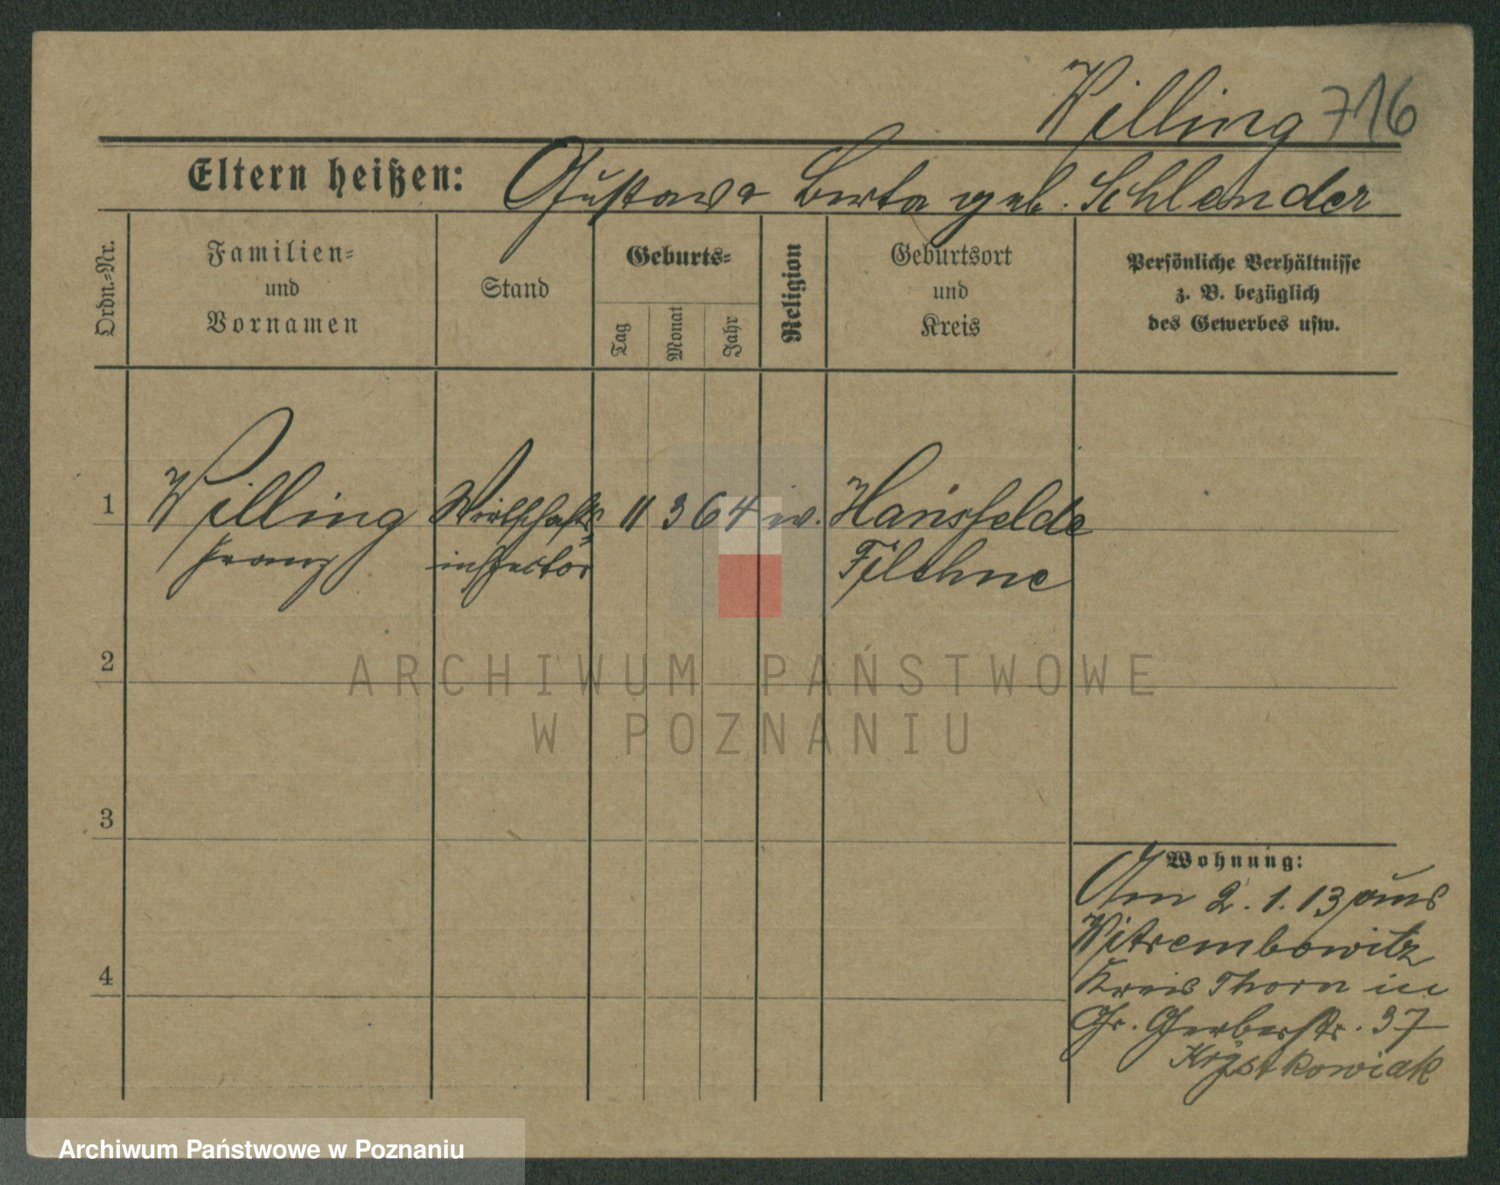 Willing 716
Eltern heißen: Gustav u Berta geb. Schlender
Ordn.-Nr.
Familien-
und
Vornamen
Stand
Geburts-
Tag
Monat
Jahr
Religion
Geburtsort
und
Kreis
Persönliche Verhältnisse
z. B. bezüglich
des Gewerbes usw.
1 Willing Wirtschafts 11 3 64 ev. Hansfelde
Franz inspector Filehne
2
3
4
ARCHIWUM PAŃSTWOWE
W POZNANIU
Wohnung:
Am 2.1.13 aus
Witrembowitz
Kreis Thorn in
Gr. Gerberstr. 37
Krystkowiak
Archiwum Państwowe w Poznaniu